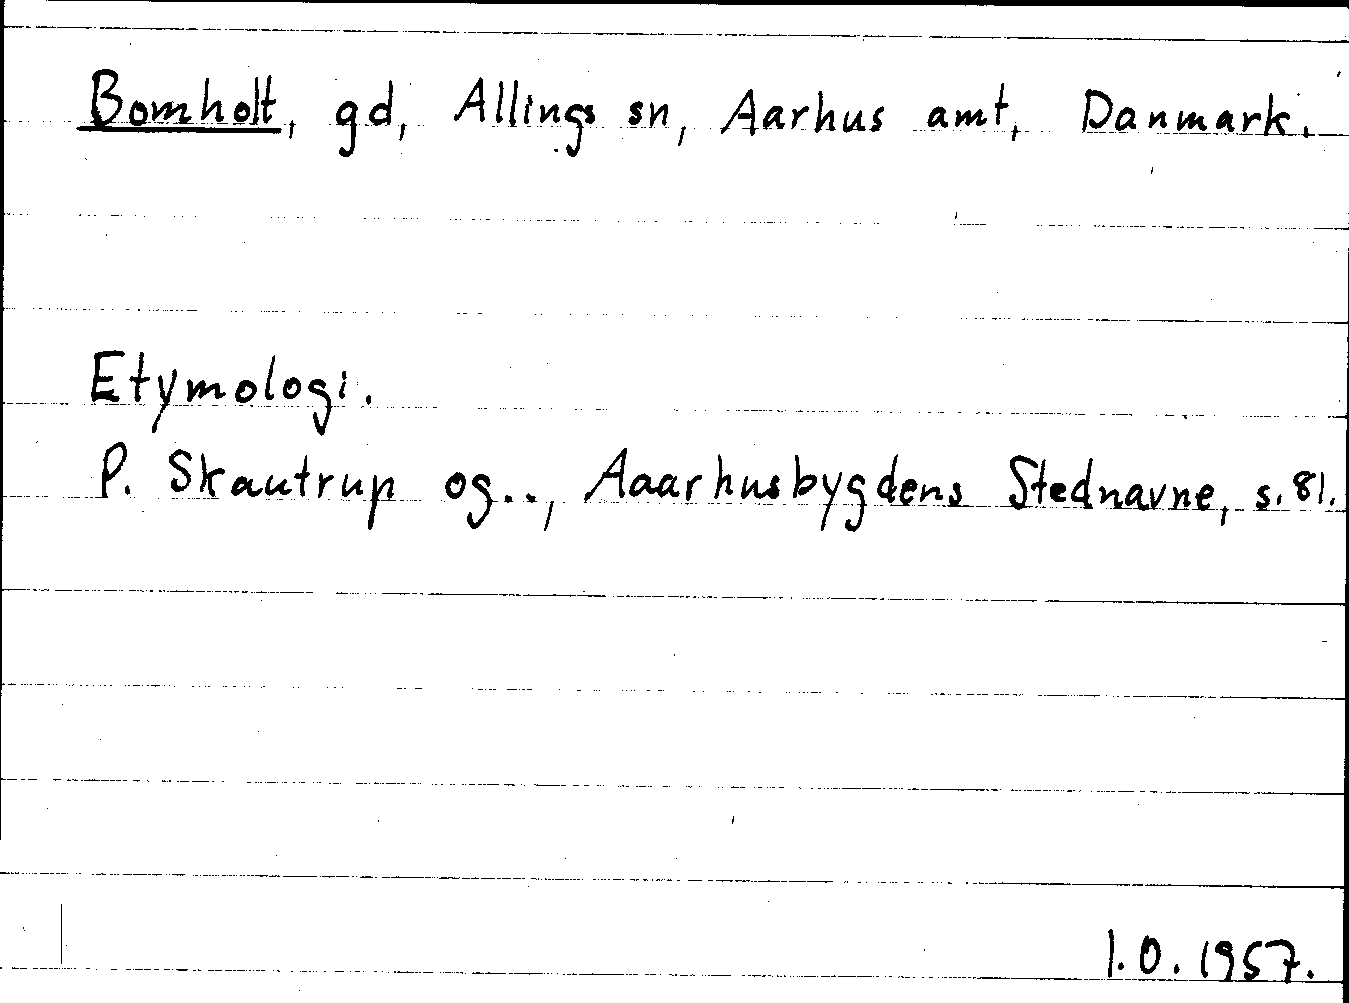 Bomholt, gd, Allings sn, Aarhus amt, Danmark.
Etymologi.
P. Skautrup og.., Aaarhusbygdens Stednavne, s. 81.
I.O. 1957.